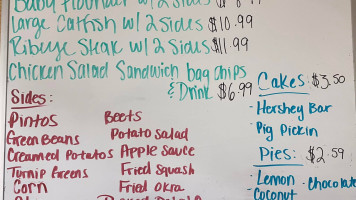 Baby Flounder w/ 2 Sides
Large Catfish w/ 2 Sides $10.99
Ribeye Steak w/ 2 Sides $11.99
Chicken Salad Sandwich bag chips
& Drink $6.99
Cakes: $3.50
Hershey Bar
Pig Pickin
Pies: $2.59
Lemon
Chocolate
Coconut
Sides:
Pintos
Green Beans
Creamed Potatos
Turnip Greens
Corn
Beets
Potato Salad
Apple Sauce
Fried Squash
Fried Okra